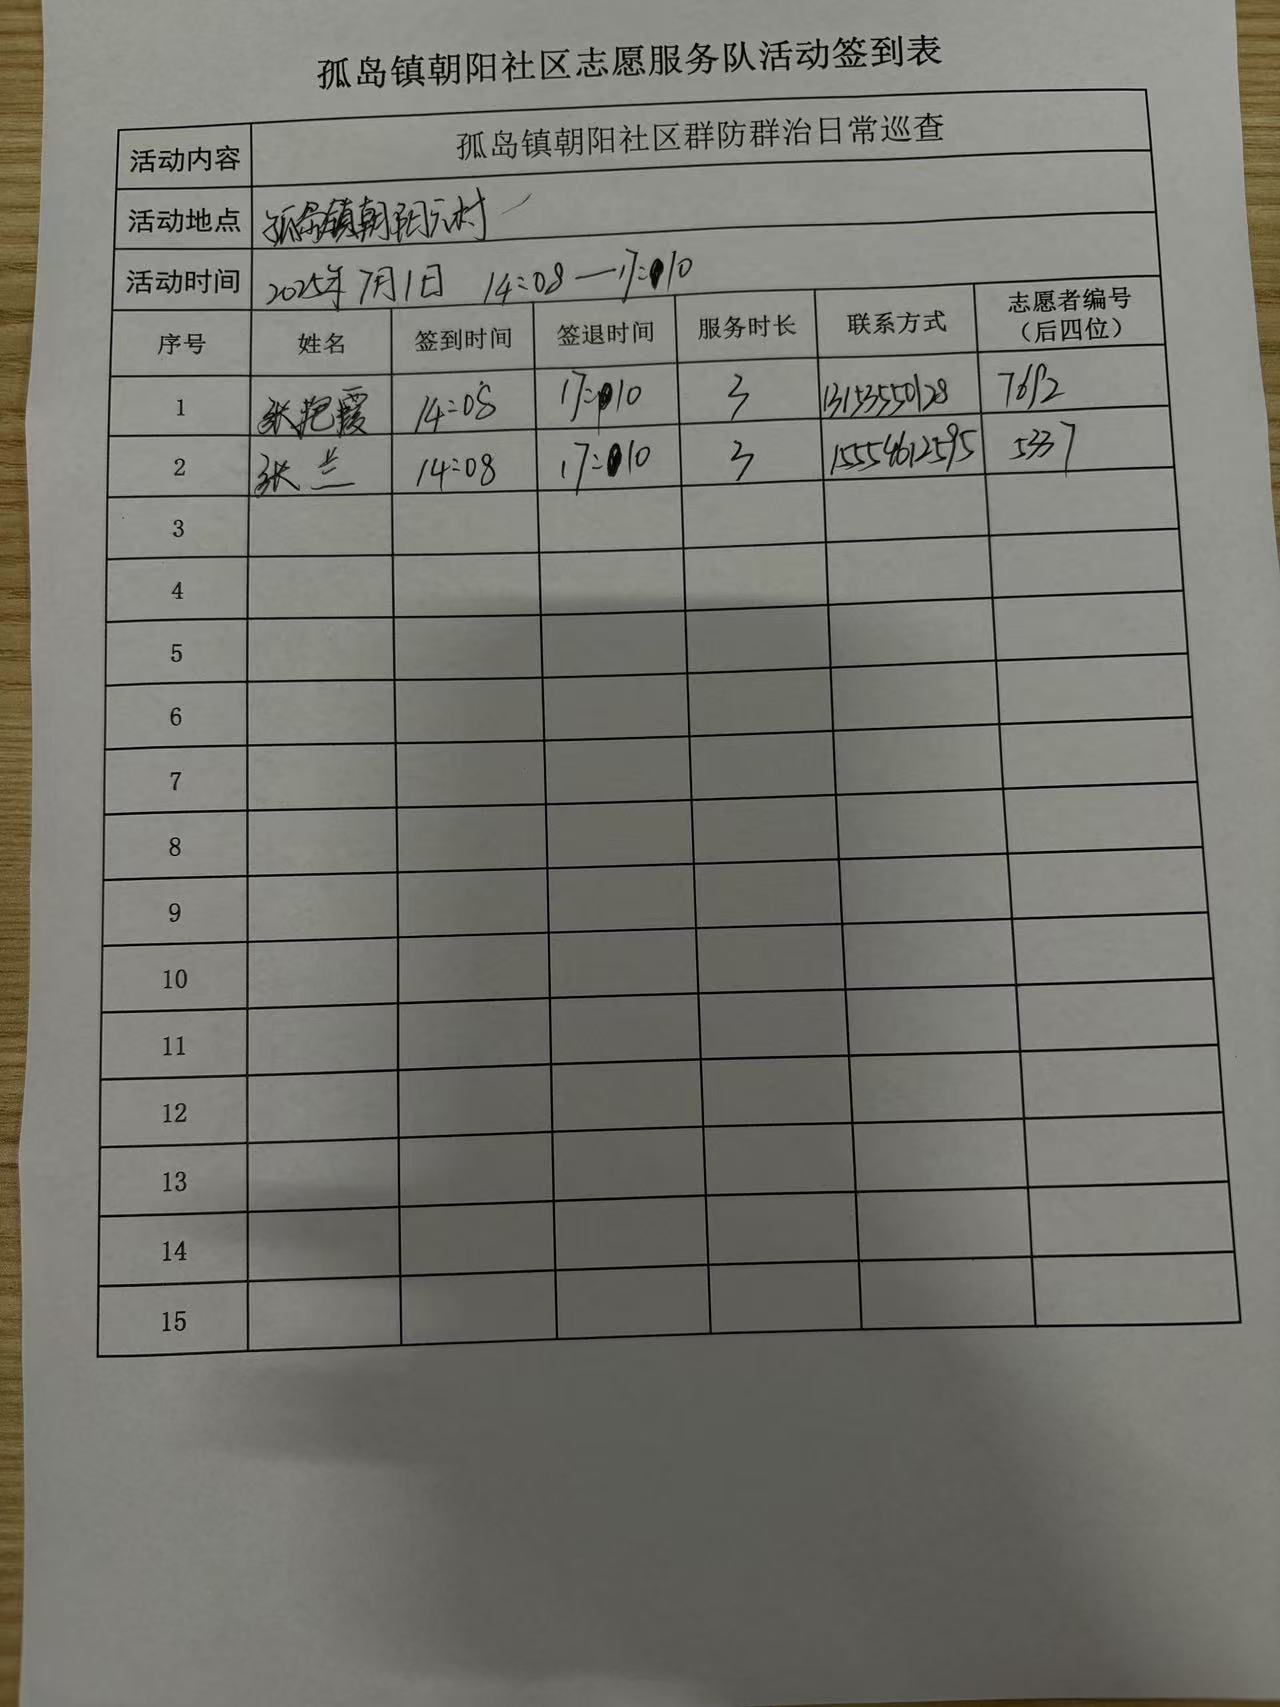 孤岛镇朝阳社区志愿服务队活动签到表
活动内容 孤岛镇朝阳社区群防群治日常巡查
活动地点 孤岛镇朝阳六村
活动时间 2025年7月1日 14:08—17:10
序号 姓名 签到时间 签退时间 服务时长 联系方式 志愿者编号
（后四位）
1 张艳霞 14:08 17:10 3 13153550128 7692
2 张兰 14:08 17:10 3 15554612595 5337
3
4
5
6
7
8
9
10
11
12
13
14
15